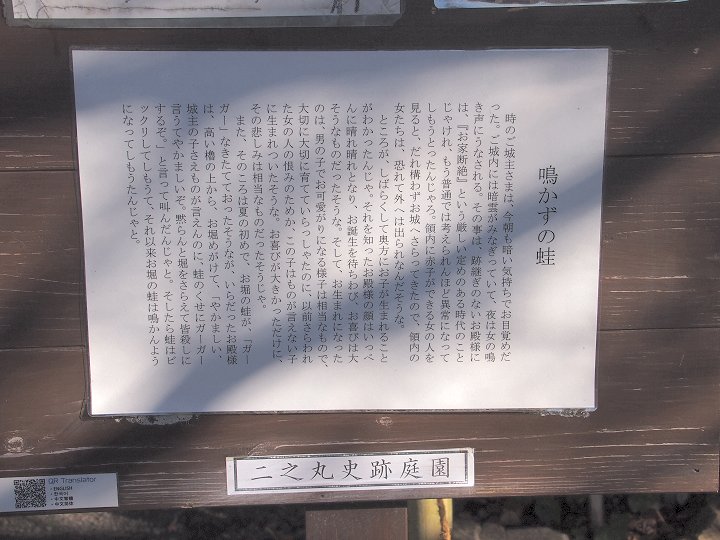 鳴かずの蛙
時のご城主さまは、今朝も暗い気持ちでお目覚めだ
った。ご城内には暗雲がみなぎっていて、夜は女の鳴
き声にうなされる。その事は、跡継ぎのないお殿様に
は、『お家断絶』という厳しい定めのある時代のこと
じゃけれ。もう普通では考えられんほど異常になって
しもうとったんじゃろ。領内に赤子ができる女の人を
見ると、だれ構わずお城へさらってきたので、領内の
女たちは、恐れて外へは出られなんだそうな。
ところが、しばらくして奥方にお子が生まれること
がわかったんじゃ。それを知ったお殿様の顔はいっぺ
んに晴れ晴れとなり、お誕生を待ちわび、お喜びは大
そうなものだったそうな。そして、お生まれになった
のは、男の子でお可愛がりになる様子は相当なもので、
大切に大切に育てていらっしゃたのに、以前さらわれ
た女の人の恨みのためか、この子はものが言えない子
に生まれついたそうな。お喜びが大きかっただけに、
その悲しみは相当なものだったそうじゃ。
また、そのころは夏の初めで、お堀の蛙が、「ガー
ガー」なきたてておったそうなが、いらだったお殿様
は、高い櫓の上から、お堀めがけて、「やかましい、
城主の子さえものが言えんのに、蛙のくせにガーガー
言うてやかましいぞ。黙らんと堀をさらえて皆殺しに
するぞ。」と言って叫んだんじゃと。そしたら蛙はピ
ックリしてしもうて、それ以来お堀の蛙は鳴かんよう
になってしもうたんじゃと。
二之丸史跡庭園
QR Translator
- ENGLISH
- 한국어
- 中文繁體
- 中文简体